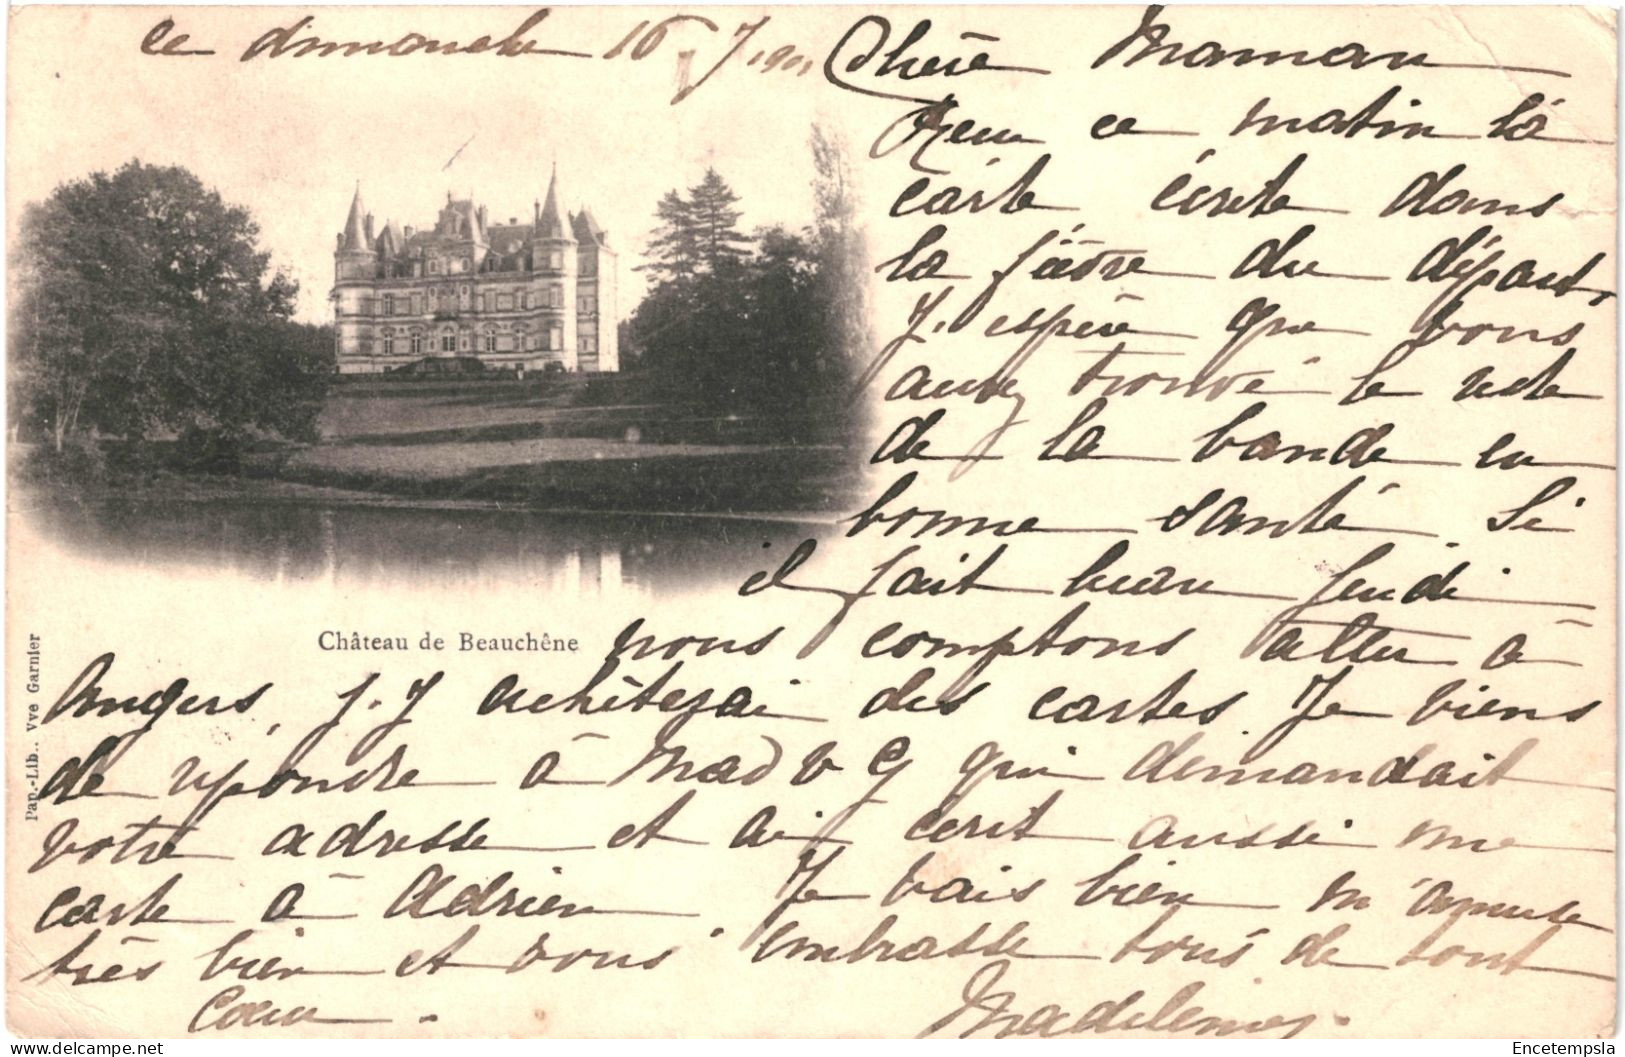 ce dimanche 16. 7. 1901
Chère Maman
Reçu ce matin la
carte écrite dans
la fièvre du départ.
J'espère que vous
avez trouvé le reste
de la bande en
bonne santé. Si
il fait beau Jeudi
nous comptons aller à
Angers, j'y achèterai des cartes. Je viens
de répondre à Mad V G qui demandait
votre adresse et ai écrit aussi une
carte à Adrien Je vais bien m'amuse
très bien et vous embrasse tous de tout
cœur.
Château de Beauchêne
Pap.-Lib.. Vve Garnier
Encetempsla